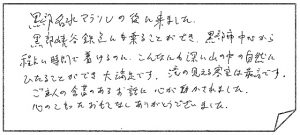 黒部名水マラソンの後に来ました。
黒部峡谷鉄道にも乗ることができ、黒部市中心から
程よい時間で着けるのに、こんなにも深い山の中の自然に
ひたることができ大満足です。滝の見える客室は最高です。
ご主人の含蓄のあるお話に心が動かされました。
心のこもったおもてなしありがとうございました。